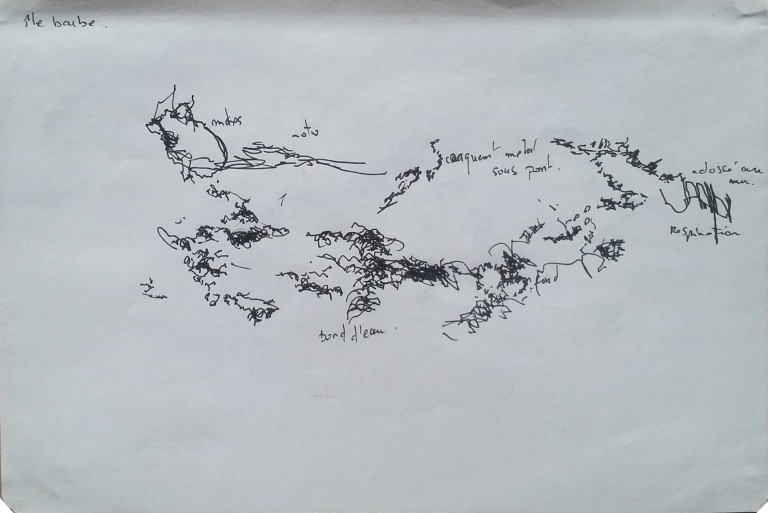 Île barbe.
moto
craquemt métal
sous pont.
adossé au
mur.
Respiration
fond
bord d'eau.